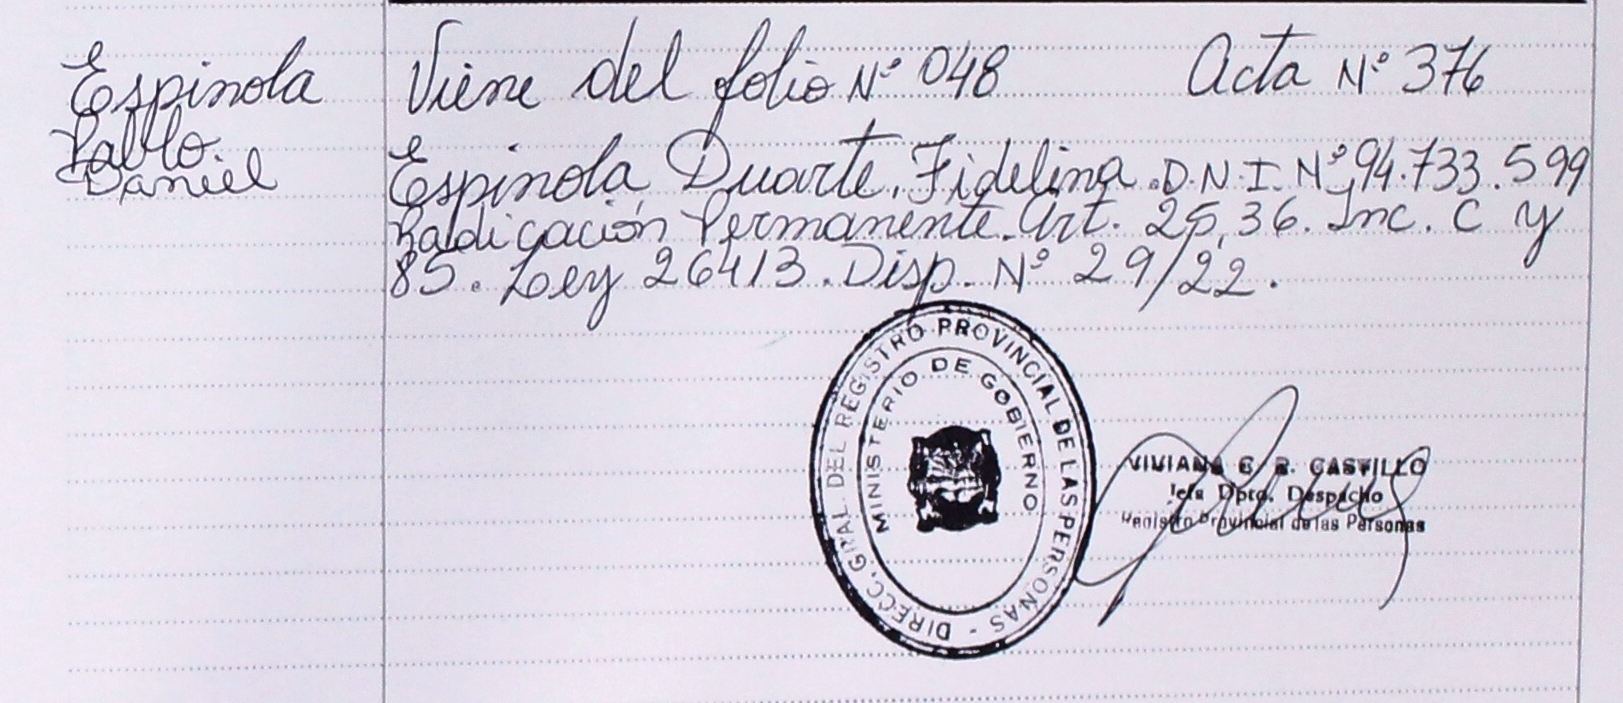 Espinola
Pablo.
Daniel
Viene del folio Nº 048 Acta Nº 376
Espinola Duarte, Fidelina. D.N.I. Nº 94.733.599
Radicación Permanente. Art. 25, 36. Inc. C y
85. Ley 26413. Disp. Nº 29/22.
DIRECC. GRAL. DEL REGISTRO PROVINCIAL DE LAS PERSONAS -
MINISTERIO DE GOBIERNO
VIVIANA C. R. CASTILLO
Jefa Dpto. Despacho
Registro Provincial de las Personas